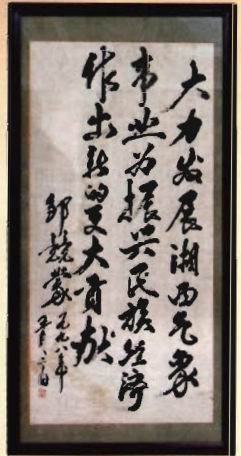 大力发展湘西气象
事业为振兴民族经济
作出新的更大贡献
邹竞蒙 一九九八年